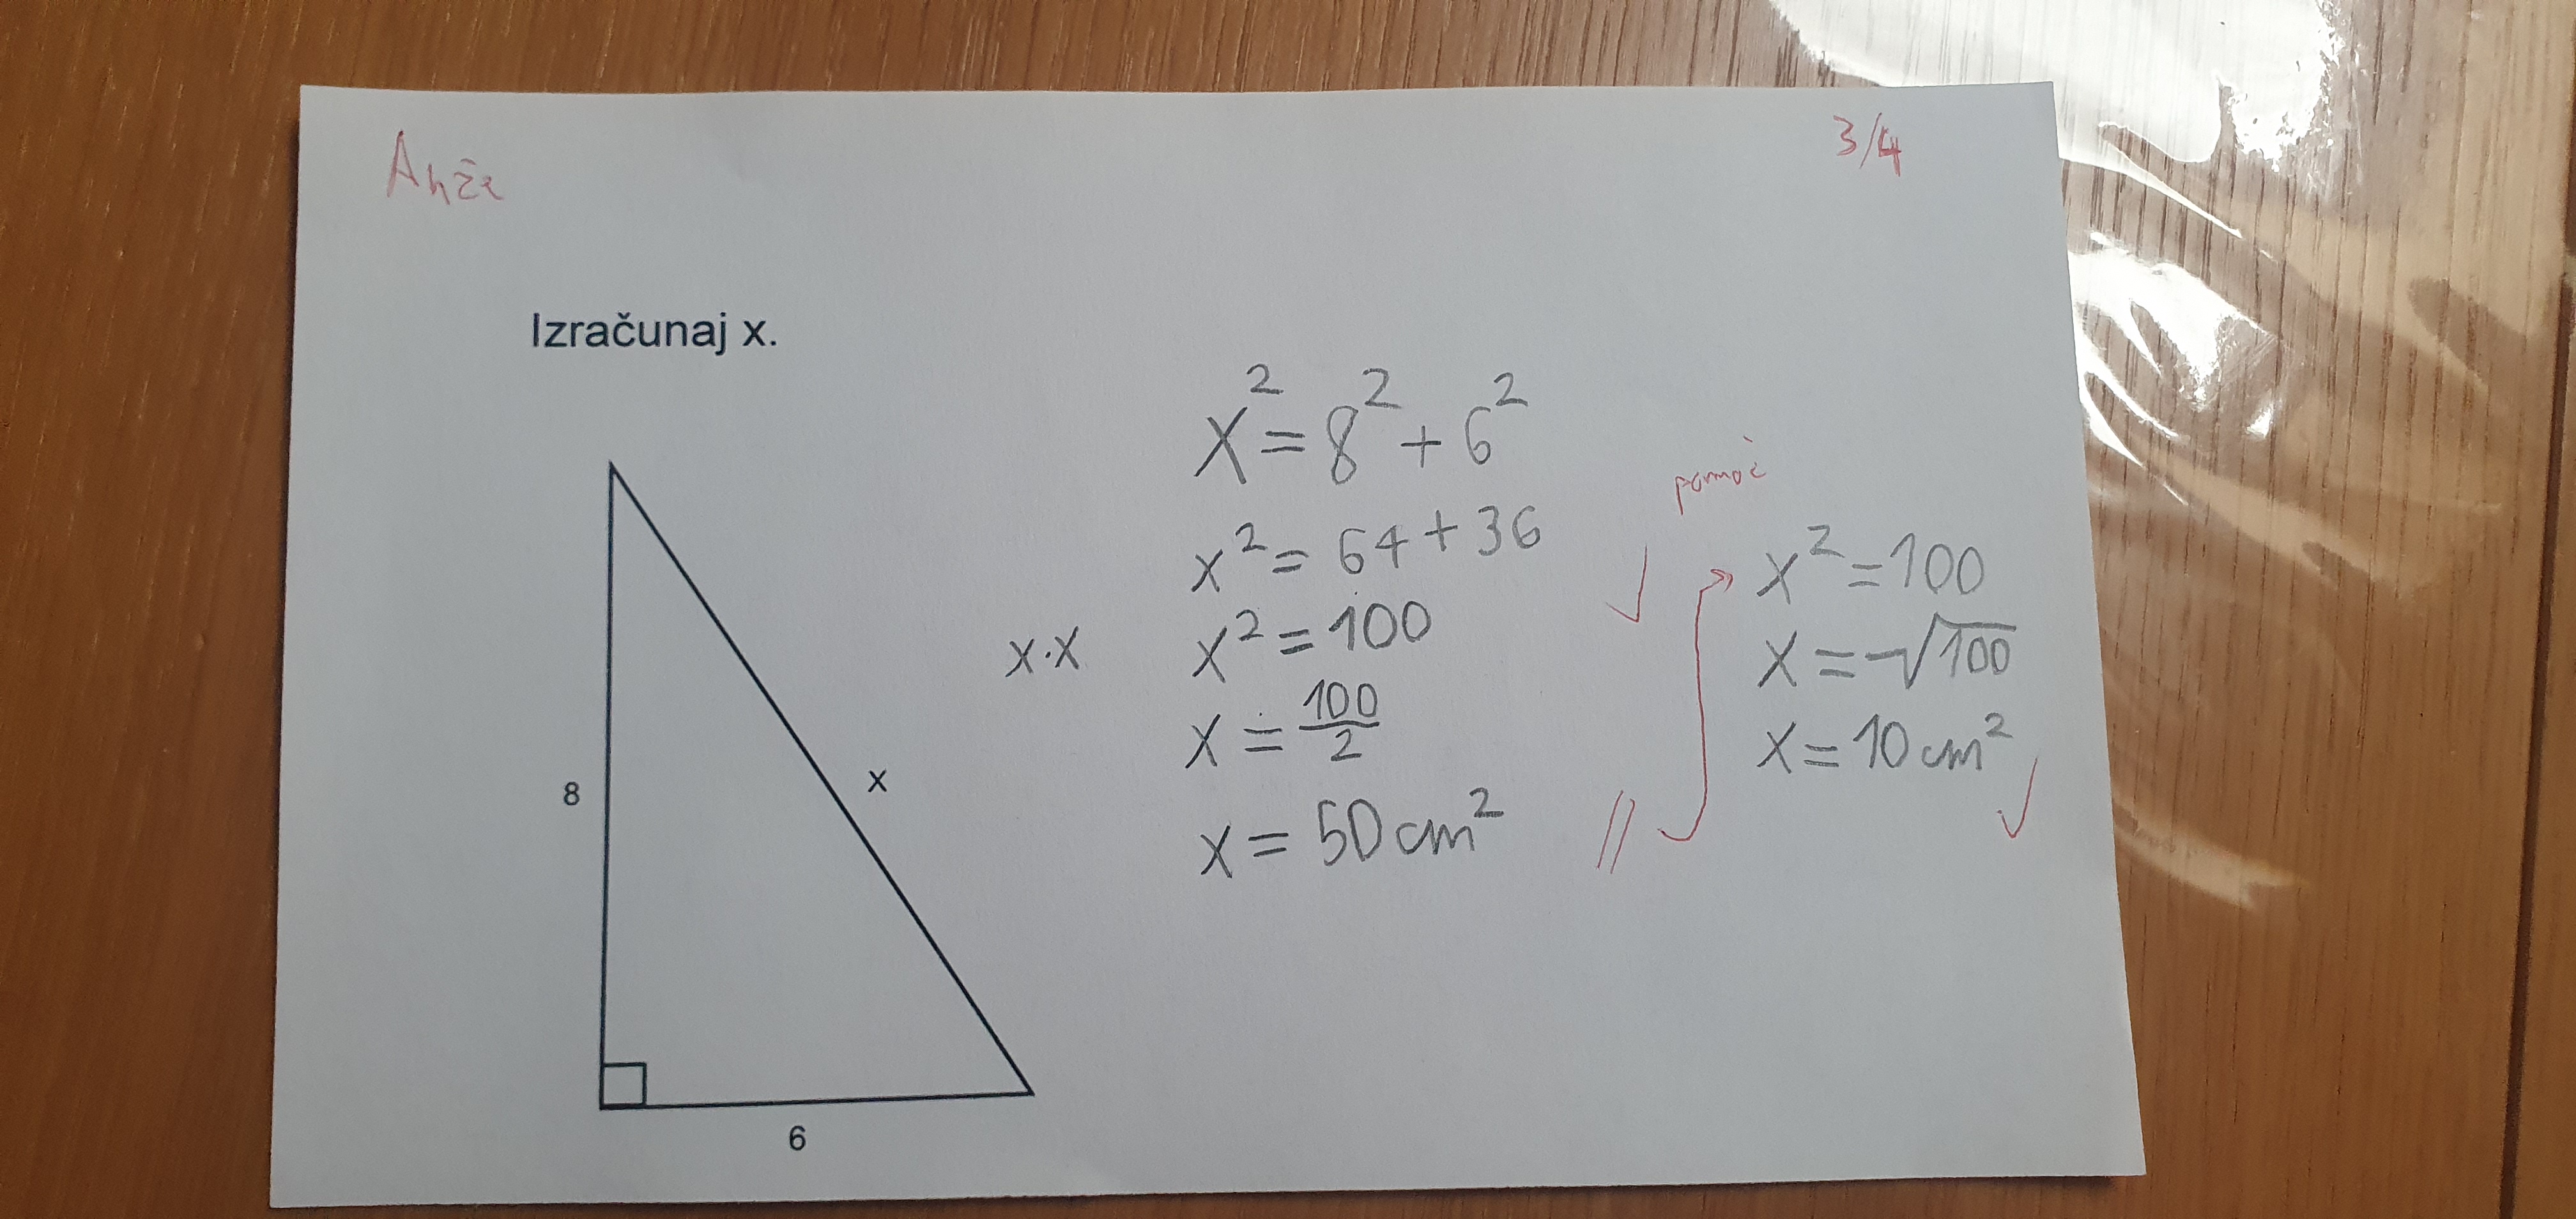 Anže
3/4
Izračunaj x.
8
x
6
x² = 8² + 6²
x² = 64 + 36
x·x
x² = 100
x = 100/2
x = 50 cm²
pomoč
x² = 100
x = √100
x = 10 cm²